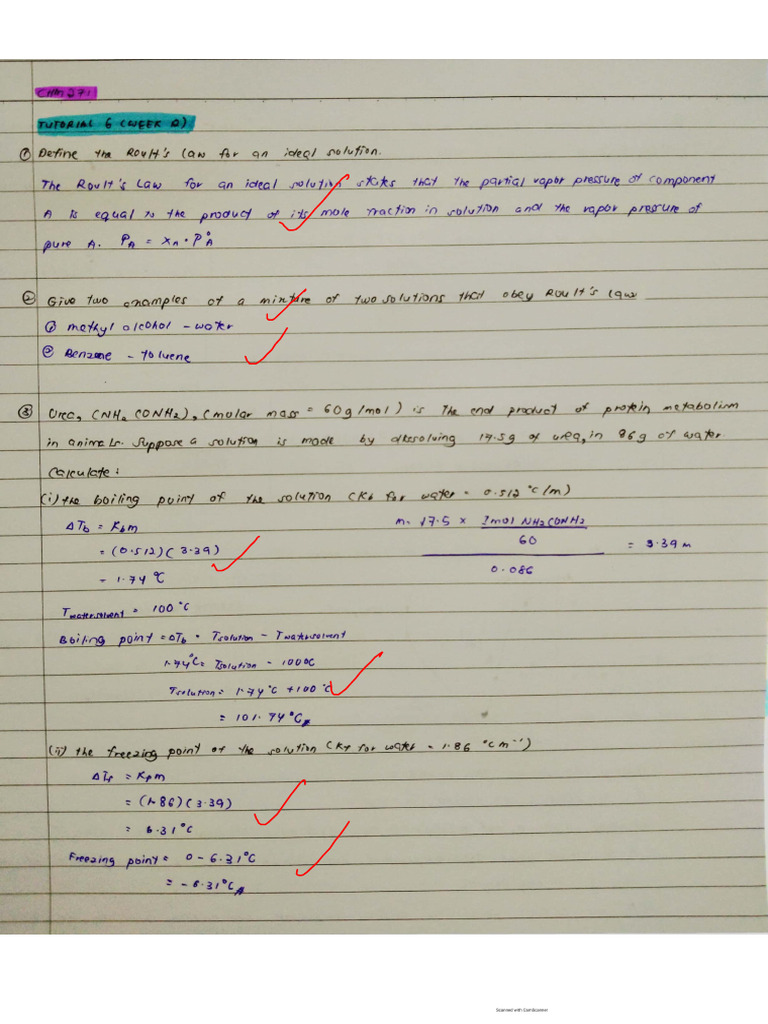 CHM271
TUTORIAL 6 (WEEK 12)
① Define the Roult's law for an ideal solution.
The Roult's Law for an ideal solution states that the partial vapor pressure of component
A is equal to the product of its mole fraction in solution and the vapor pressure of
pure A. PA = XA • P°A
② Give two examples of a mixture of two solutions that obey Roult's law
① methyl alcohol - water
② Benzene - toluene
③ Urea, (NH2 CONH2), (molar mass = 60g/mol) is the end product of protein metabolism
in animals. Suppose a solution is made by dissolving 17.5g of urea, in 86g of water.
Calculate:
(i) the boiling point of the solution (Kb for water = 0.512 °C/m)
ΔTb = Kbm
= (0.512)(3.39)
= 1.74 °C
m = 17.5 × 1mol NH2CONH2
60
0.086
= 3.39 m
Twater solvent = 100 °C
Boiling point = ΔTb = Tsolution - Twater solvent
1.74°C = Tsolution - 100°C
Tsolution = 1.74°C + 100°C
= 101.74°C
(ii) the freezing point of the solution (Kf for water = 1.86 °C m⁻¹)
ΔTf = Kfm
= (1.86)(3.39)
= 6.31°C
Freezing point = 0 - 6.31°C
= -6.31°C
Scanned with CamScanner